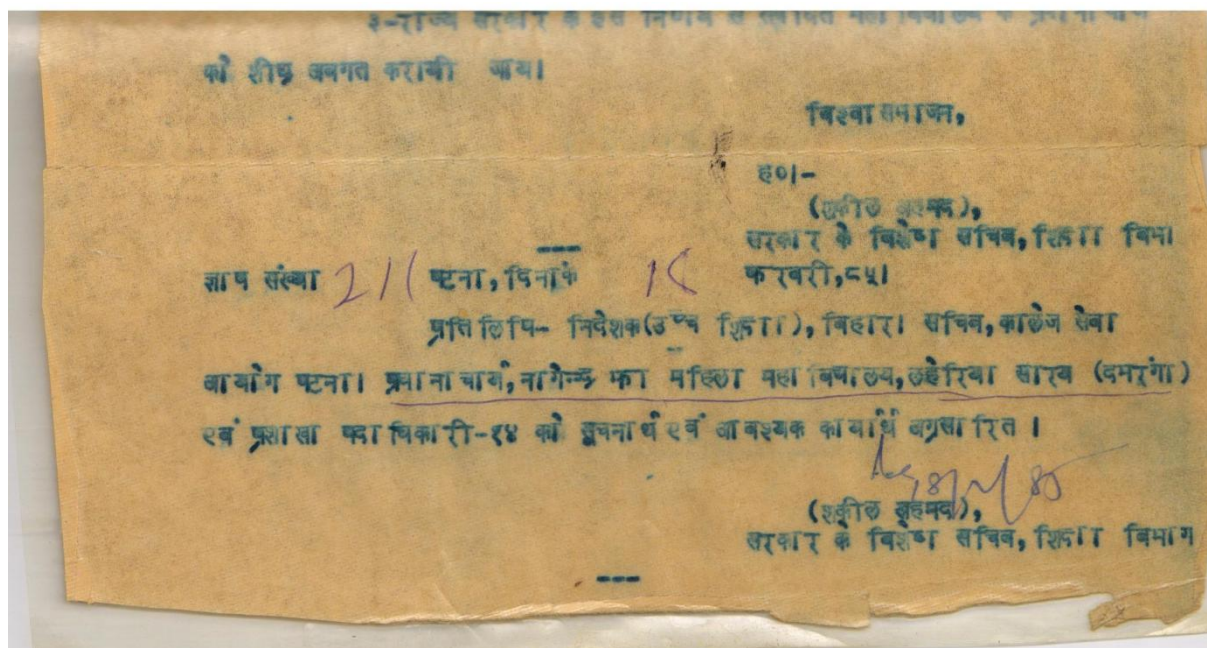 ३-राज्य सरकार के इस निर्णय से संबंधित महा विद्यालय के प्रधानाचार्य
को शीघ्र अवगत करायी जाय।
विश्वासभाजन,
ह०।-
(शकील अहमद),
सरकार के विशेष सचिव, शिक्षा विभा
---
ज्ञाप संख्या 211 पटना, दिनांक 18 फरवरी, ८५।
प्रतिलिपि- निदेशक(उच्च शिक्षा), बिहार। सचिव, कालेज सेवा
आयोग पटना। प्रधानाचार्य, नागेन्द्र झा महिला महा विद्यालय, लहेरिया सराय (दमरंगा)
एवं प्रशाखा पदाधिकारी-१४ को सूचनार्थ एवं आवश्यक कार्यार्थ अग्रसारित ।
(शकील अहमद),
सरकार के विशेष सचिव, शिक्षा विभाग
---